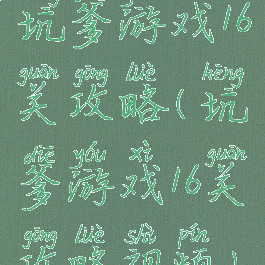 坑爹游戏16
guān gōng lüè kēng
关攻略(坑
diē yóu xì guān
爹游戏16关
gōng lüè shì pín
攻略视频)